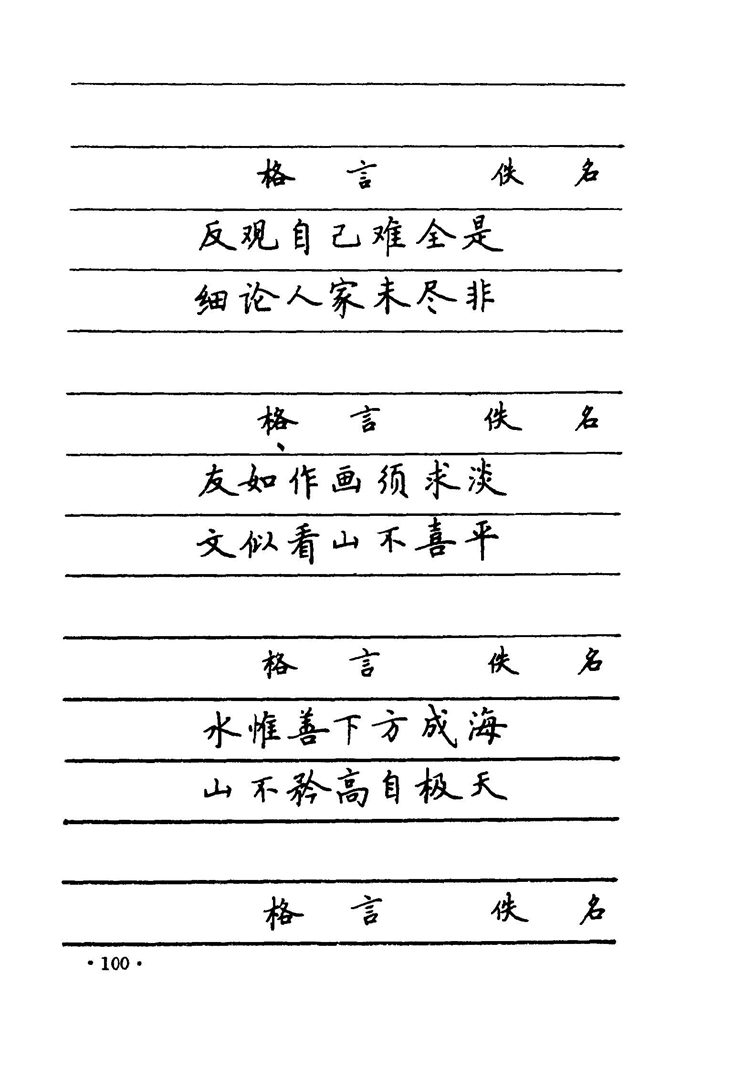 格言 佚名
反观自己难全是
细论人家未尽非
格言 佚名
友如作画须求淡
文似看山不喜平
格言 佚名
水惟善下方成海
山不矜高自极天
格言 佚名
·100·